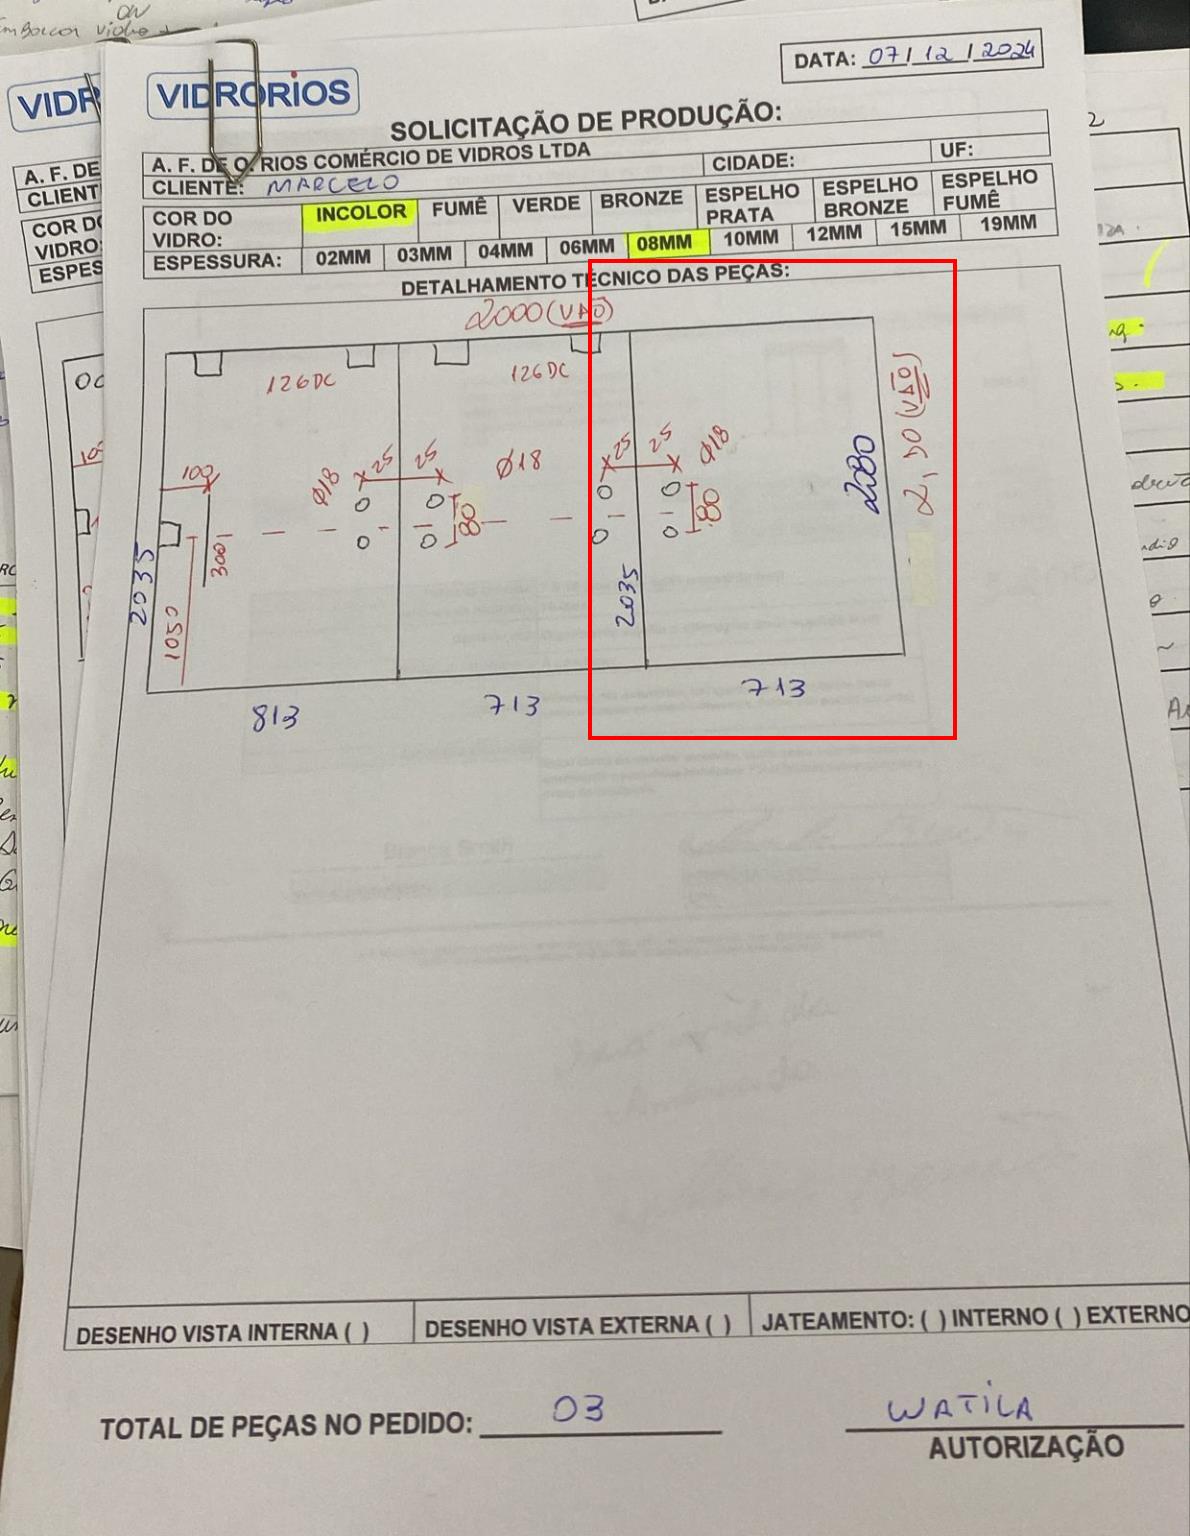 DATA: 07/12/2024
VIDRORIOS
SOLICITAÇÃO DE PRODUÇÃO:
A. F. DE O. RIOS COMÉRCIO DE VIDROS LTDA CIDADE: UF:
CLIENTE: MARCELO
COR DO VIDRO: INCOLOR FUMÊ VERDE BRONZE ESPELHO PRATA ESPELHO BRONZE ESPELHO FUMÊ
ESPESSURA: 02MM 03MM 04MM 06MM 08MM 10MM 12MM 15MM 19MM
DETALHAMENTO TÉCNICO DAS PEÇAS:
2000 (VÃO)
126DC 126DC
2,50 (VÃO)
100 Ø18 25 25 Ø18 25 25 Ø18
2380
80 80
300
2035 1050 2035
813 713 713
DESENHO VISTA INTERNA ( ) DESENHO VISTA EXTERNA ( ) JATEAMENTO: ( ) INTERNO ( ) EXTERNO
TOTAL DE PEÇAS NO PEDIDO: 03
WATILA
AUTORIZAÇÃO
VIDR
A. F. DE
CLIENT
COR DO
VIDRO:
ESPES